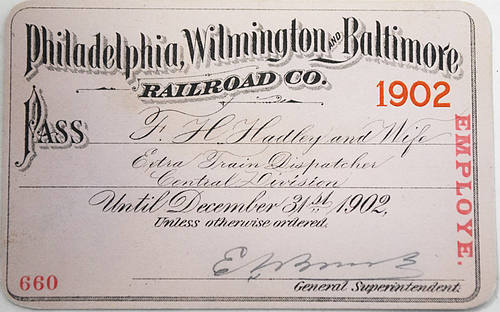 Philadelphia, Wilmington AND Baltimore
RAILROAD CO.
1902
PASS F H Hadley and Wife
Extra Train Dispatcher
Central Division
Until December 31st 1902,
Unless otherwise ordered.
EMPLOYE.
660
General Superintendent.